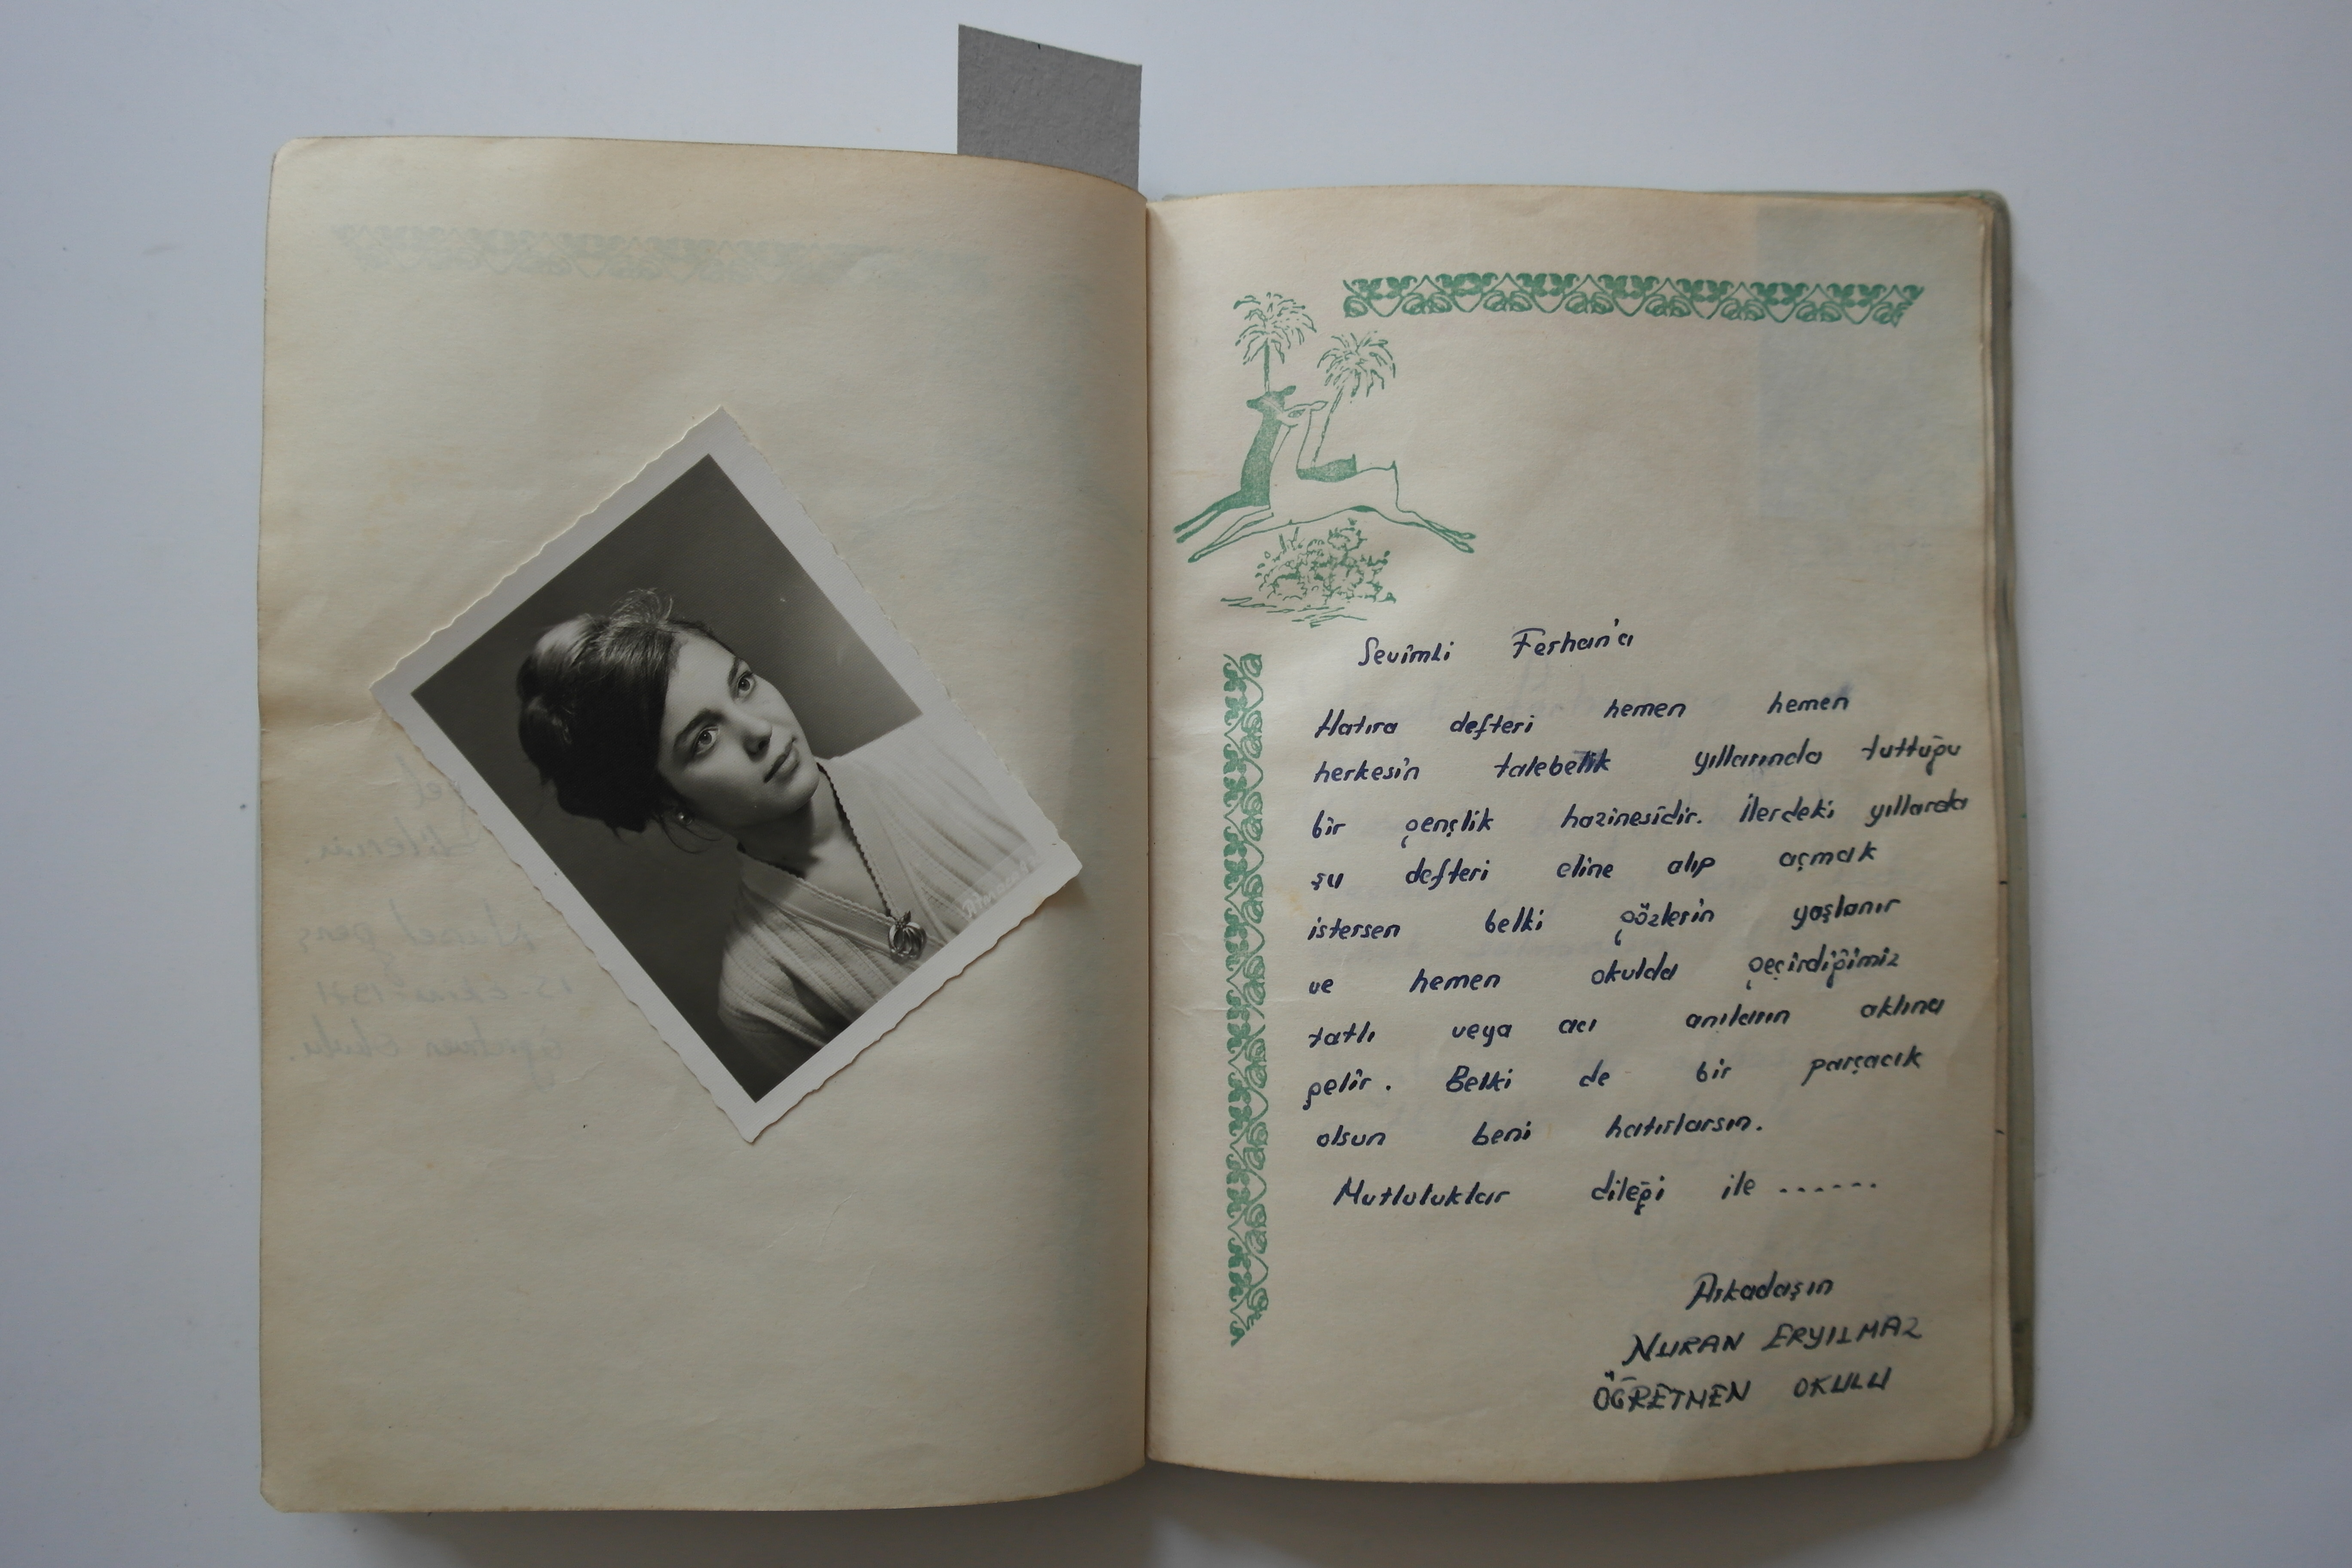 Sevimli Ferhan'a
Hatıra defteri hemen hemen
herkesin talebelik yıllarında tuttuğu
bir gençlik hazinesidir. İlerdeki yıllarda
şu defteri eline alıp açmak
istersen belki gözlerin yaşlanır
ve hemen okulda geçirdiğimiz
tatlı veya acı anıların aklına
gelir. Belki de bir parçacık
olsun beni hatırlarsın.
Mutluluklar dileği ile ......
Arkadaşın
NURAN ERYILMAZ
ÖĞRETMEN OKULU